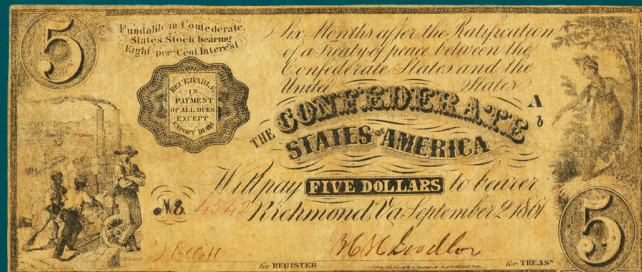 5
Fundable in Confederate
States Stock bearing
Eight per Cent Interest
RECEIVABLE
IN
PAYMENT
OF ALL DUES
EXCEPT
EXPORT DUTIES
Six Months after the Ratification
of a Treaty of peace between the
Confederate States and the
United States
A
b
THE CONFEDERATE
STATES OF AMERICA
Will pay FIVE DOLLARS to bearer
No. Richmond, Va September 2 1861
for REGISTER
for TREASR
5